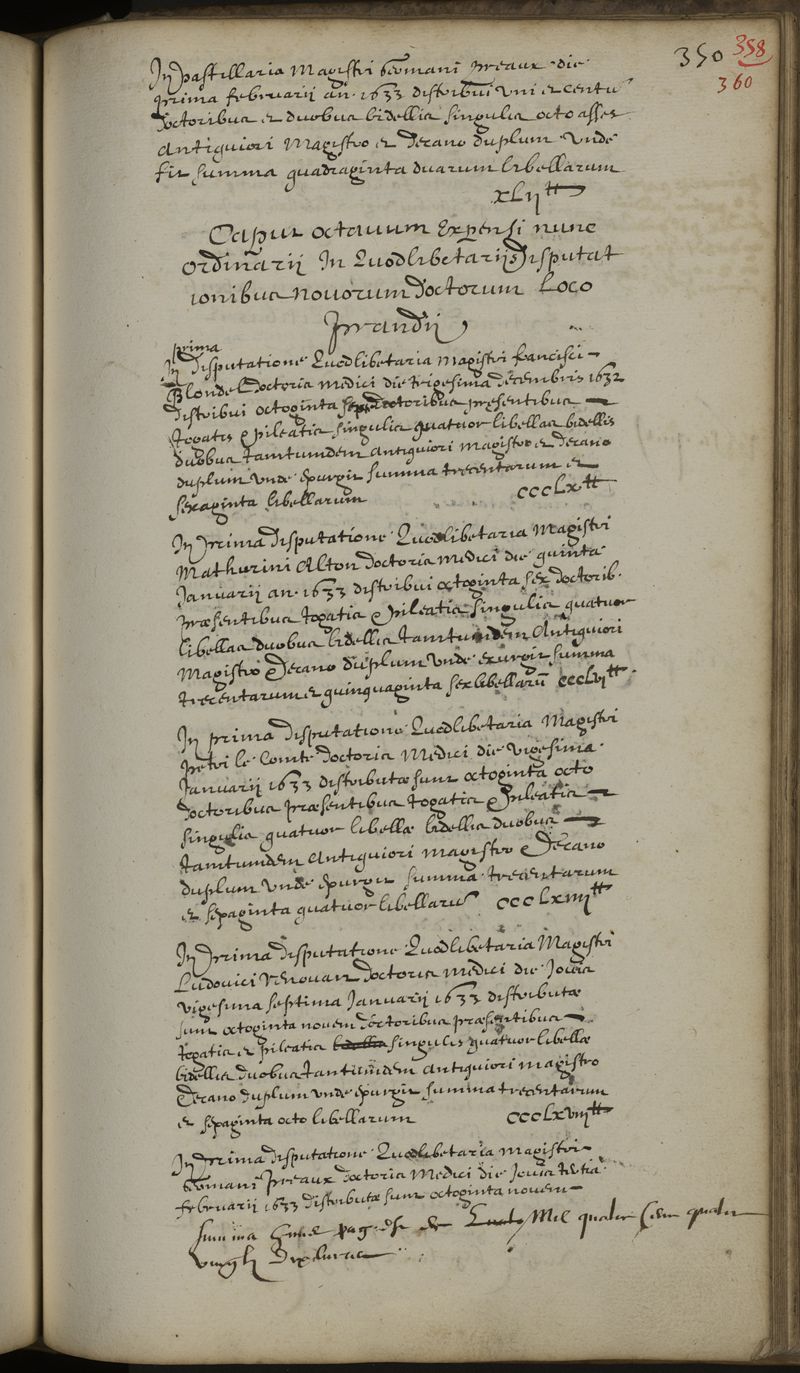 350 358
360
In pastillaria Magistri Germani Preaux die
prima februarii an. 1633 distribui uni et centū
doctoribus et duobus bidellis singulis octo asses
Antiquiori Magistro et Decano duplum unde
fit summa quadraginta duarum libellarum
xLij tt
Caput octavum Expensi nunc
ordinarii In Quodlibetariis Disputat
ionibus novorum Doctorum Loco
Prandii
prima
In disputatione Quodlibetaria Magistri francisci
Blondel doctoris medici die trigesima decembris 1632
distribui octoginta doctoribus præsentibus
togatis & pileatis singulis quatuor libellas bidellis
duobus tantumdem antiquiori magistro et decano
duplum unde exurgit summa trecentarum et
sexaginta libellarum cccLx tt
In Prima disputatione Quodlibetaria Magistri
Mathurini Alton doctoris medici die quinta
Januarii an. 1633 distribui octoginta sex doctorib.
præsentibus togatis & pileatis singulis quatuor
libellas duobus bidellis tantumdem Antiquiori
Magistro & Decano duplum unde exurgit summa
trecentarum et quinquaginta sex libellarū cccLvj tt
In prima disputatione Quodlibetaria Magistri
Petri le Comte doctoris Medici die vigesima
Januarii 1633 distributæ sunt octoginta octo
doctoribus præsentibus togatis & pileatis
singulis quatuor libellæ bidellis duobus
tantumdem Antiquiori magistro & Decano
duplum unde exurgit summa trecentarum
et sexaginta quatuor libellarū cccLxiiij tt
In Prima disputatione Quodlibetaria Magistri
Ludovici Renouart doctoris medici die Jovis
vigesima septima Januarii 1633 distributæ
sunt octoginta novem doctoribus præsentibus
togatis et pileatis singulis quatuor libellæ
bidellis duobus tantumdem antiquiori magistro
Decano duplum unde exurgit summa trecentarum
et sexaginta octo libellarum cccLxviij tt
In Prima disputatione Quodlibetaria magistri
Germani Preaux doctoris Medici die Jovis tertia
februarii 1633 distributæ sunt octoginta novem
summa pag est Mil quatre cent quatre
vingts Dix livres